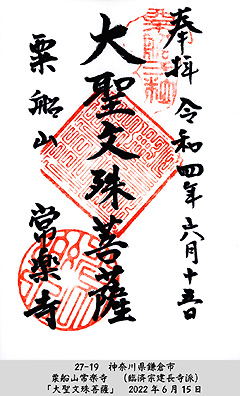 奉拝 令和四年六月十五日
大聖文殊菩薩
粟船山 常楽寺
27-19 神奈川県鎌倉市
粟船山常楽寺 (臨済宗建長寺派)
「大聖文殊菩薩」 2022年6月15日